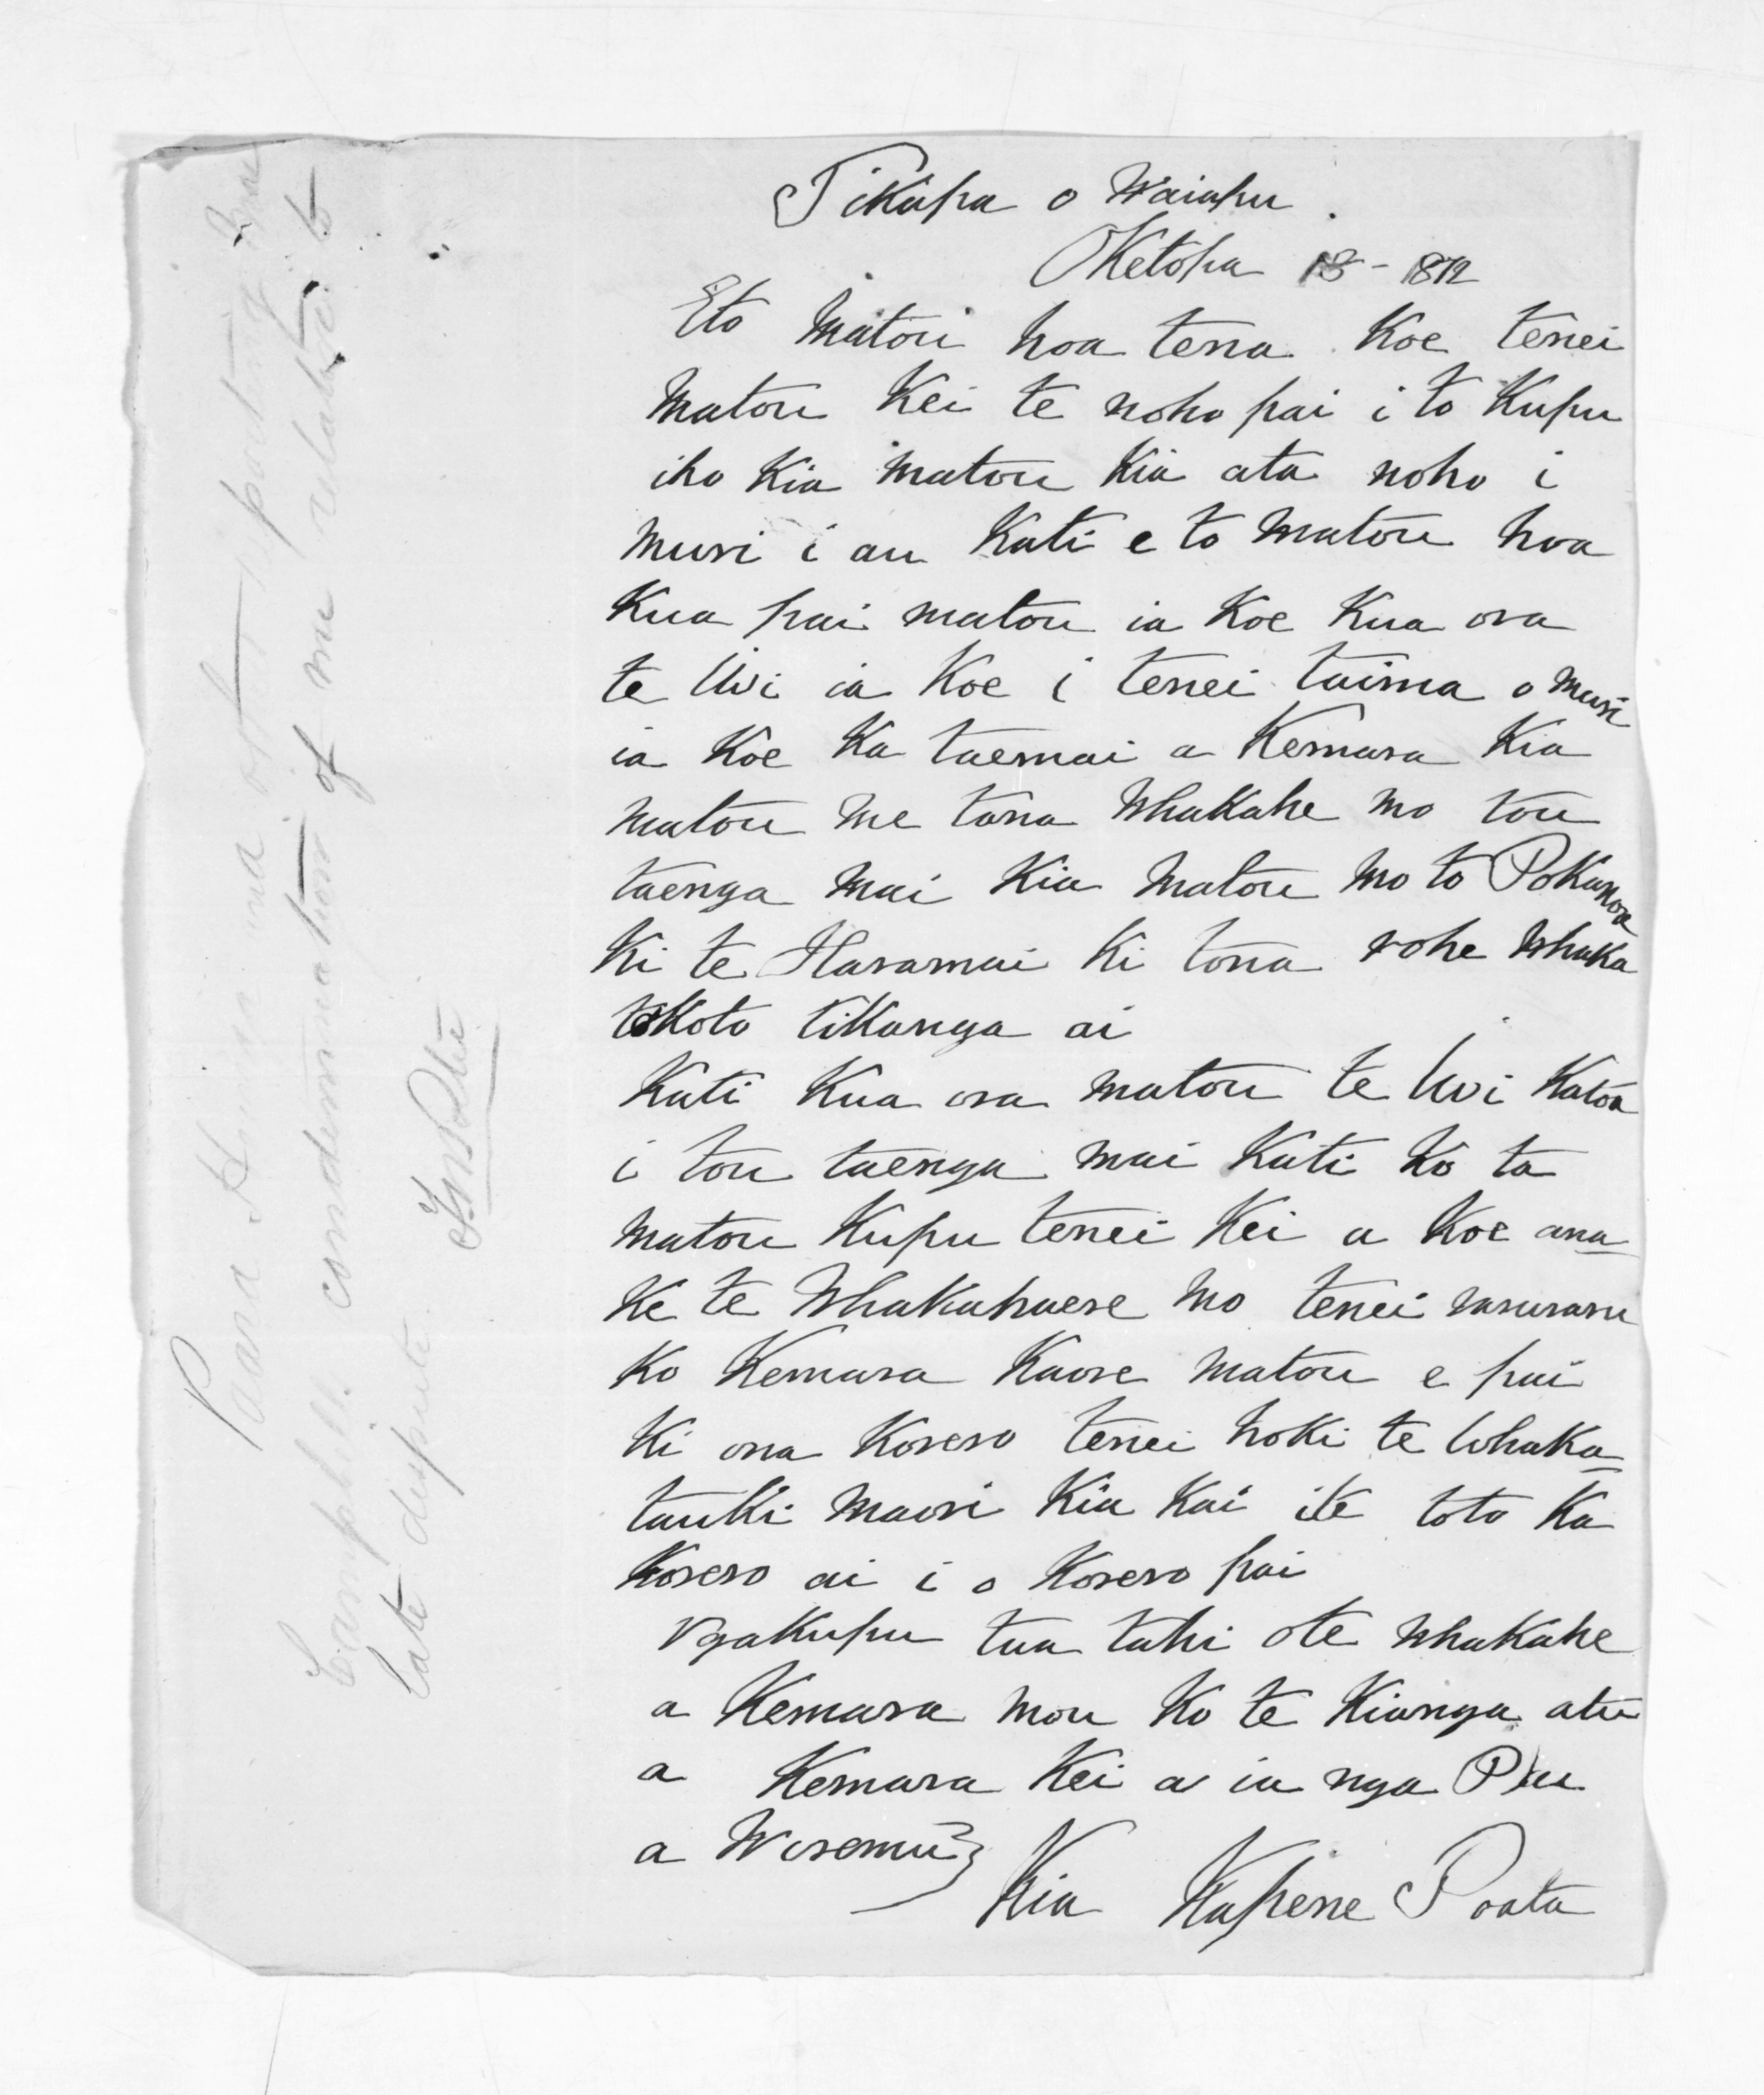 Tikapa o Waiapu.
Oketopa 13 - 1872
Eto Matou hoa tena Koe tenei
Matou Kei te noho pai i to Kupu
iho Kia Matou Kia ata noho i
Muri i au Kati e to Matou hoa
Kua pai matou ia Koe Kua ora
te Uwi ia Koe i tenei taima o Muri
ia Koe Ka taemai a Kemara Kia
Matou Me tana Whakahe Mo tou
taenga Mai Kia Matou Mo to Pokanoa
Ki te Haramai Ki tona rohe Whaka
takoto tikanga ai
Kati Kua ora Matou te Uwi Katoa
i tou taenga Mai Kati Ko ta
Matou Kupu tenei Kei a Koe ana
Ke te Whakahaere Mo tenei raruraru
Ko Kemara Kaore Matou e pai
Ki ona Korero tenei hoki te Whaka=
tauki Maori Kia Kai ite toto Ka
Korero ai i o Korero pai
Ngakupu tua tahi ote Whakahe
a Kemara Mou Ko te Kianga atu
a Kemara Kei a ia nga Puu
a Wiremu
Kia Kapene Poata
Campbell. condemnation of me relative to
late dispute.